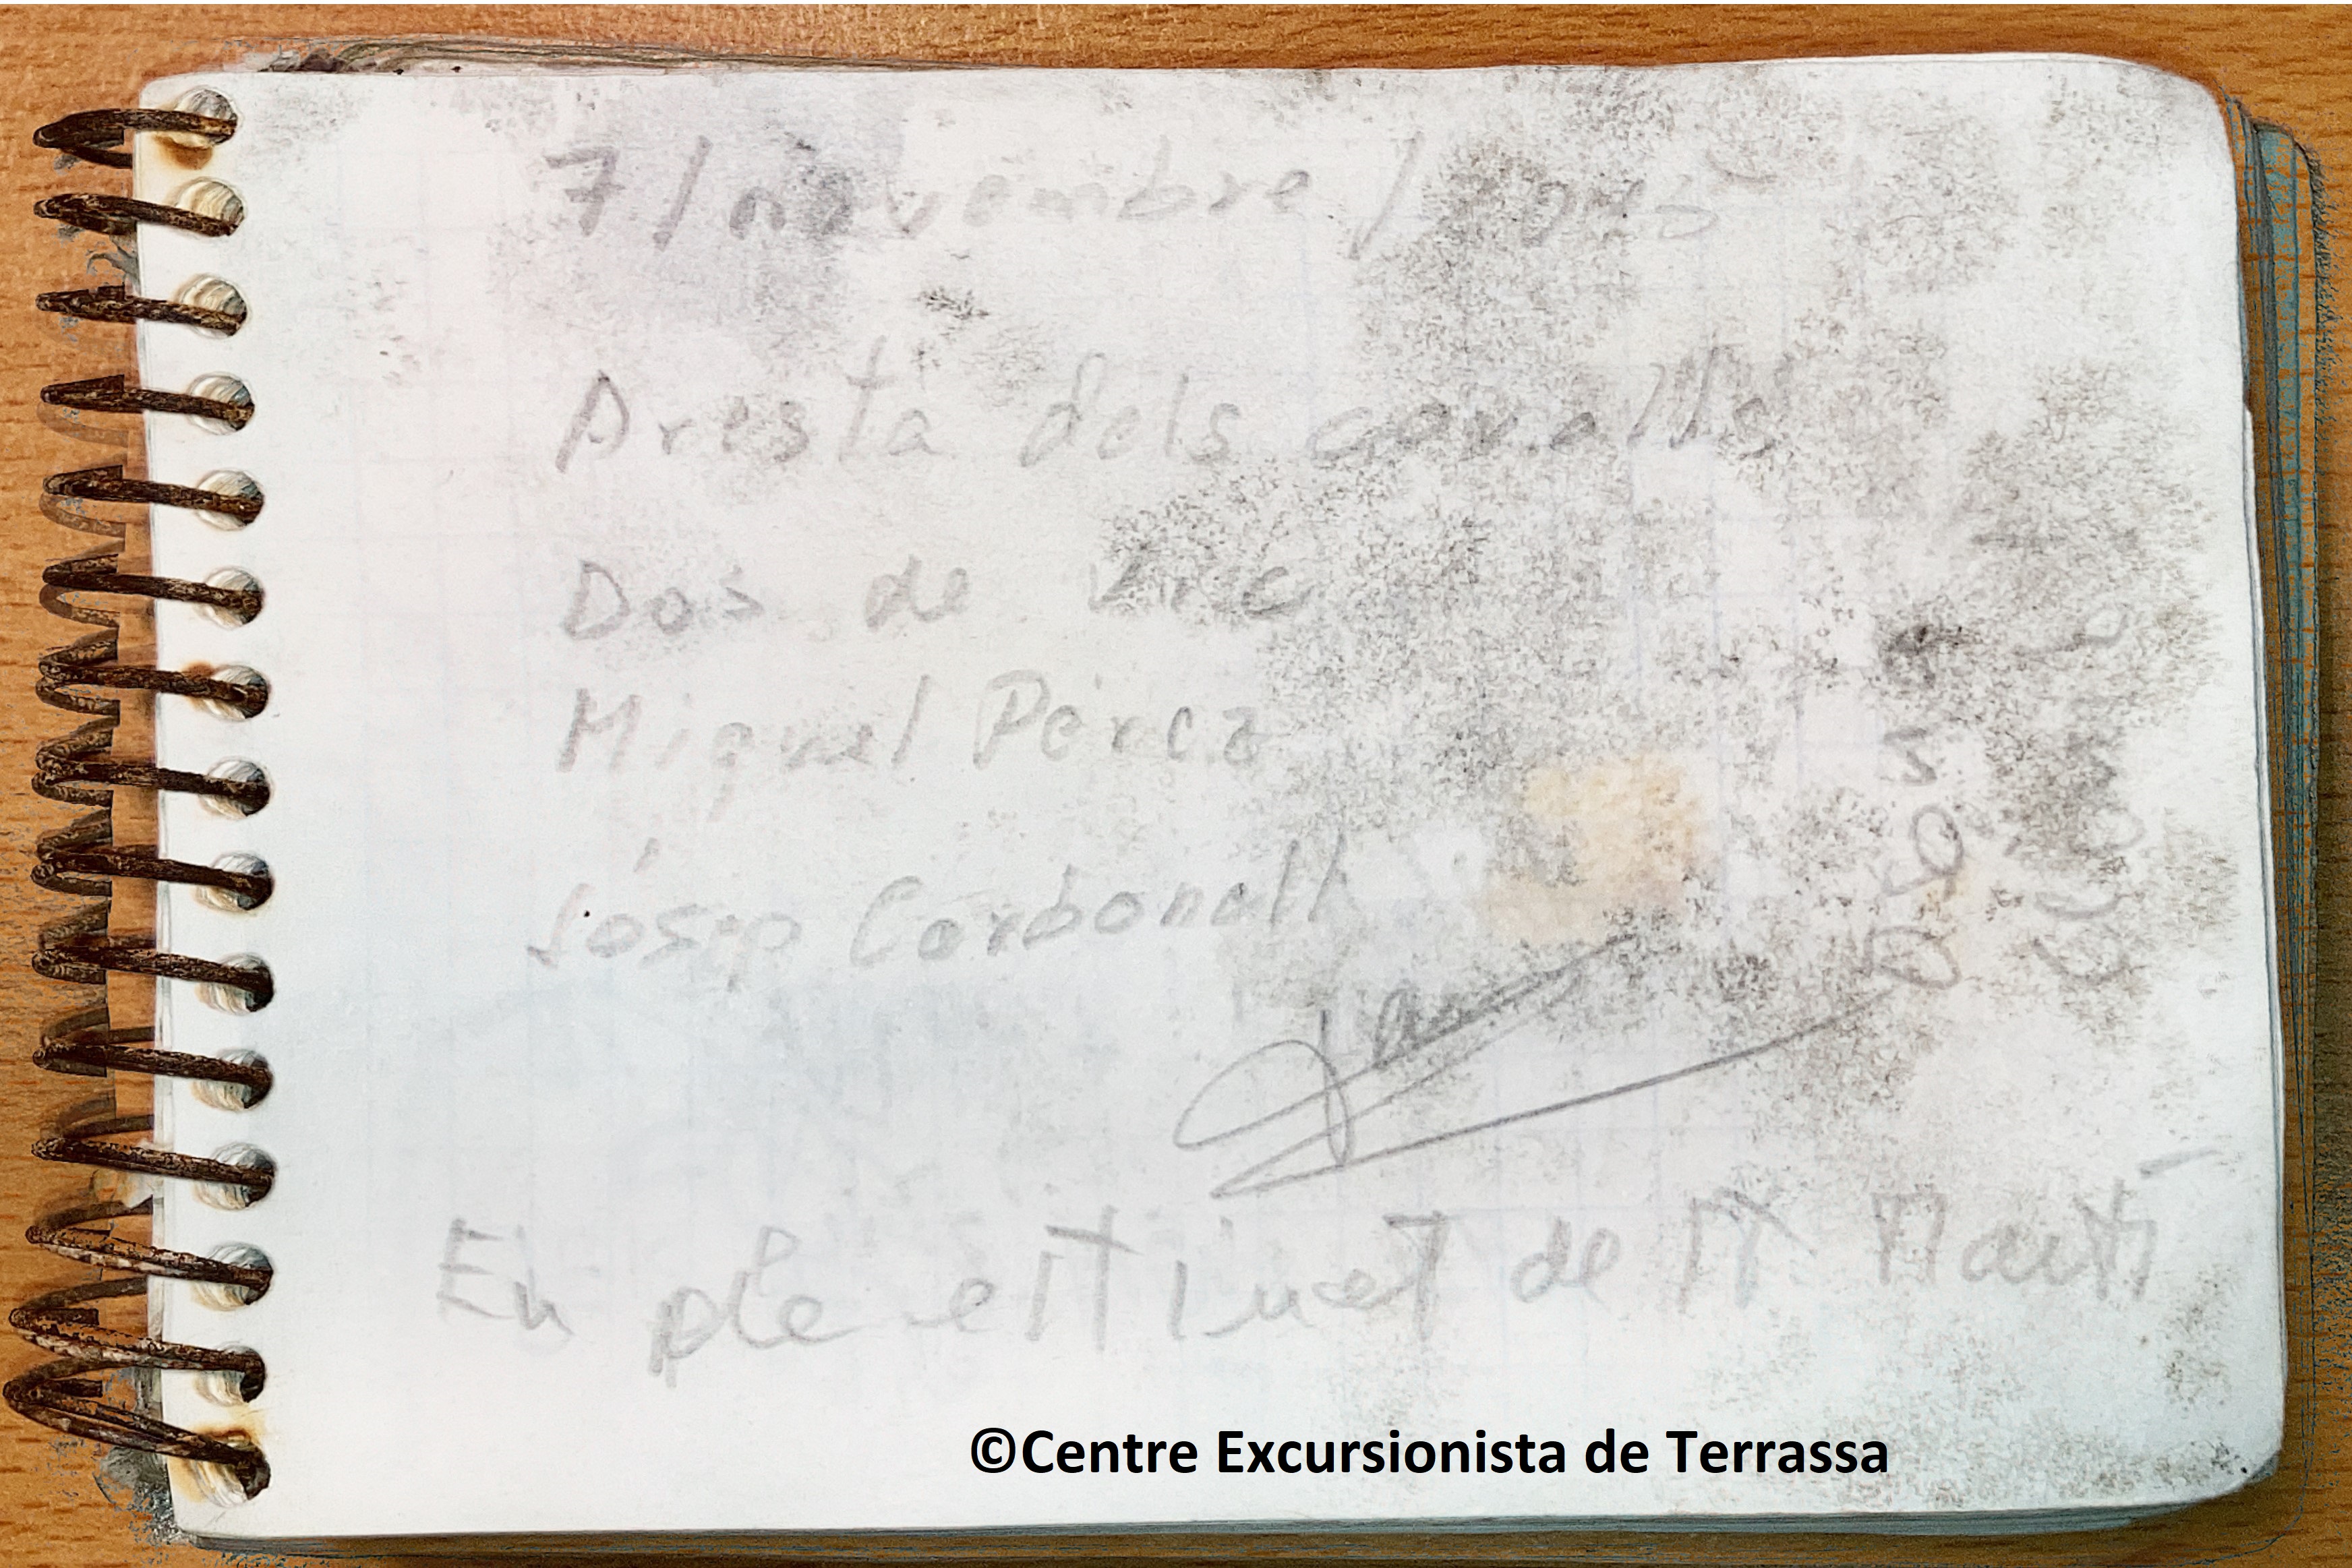 7/novembre/
Aresta dels cavalls
Dos de vic
Miquel Pérez
Josep Carbonell
En ple estiuet de St Martí
©Centre Excursionista de Terrassa